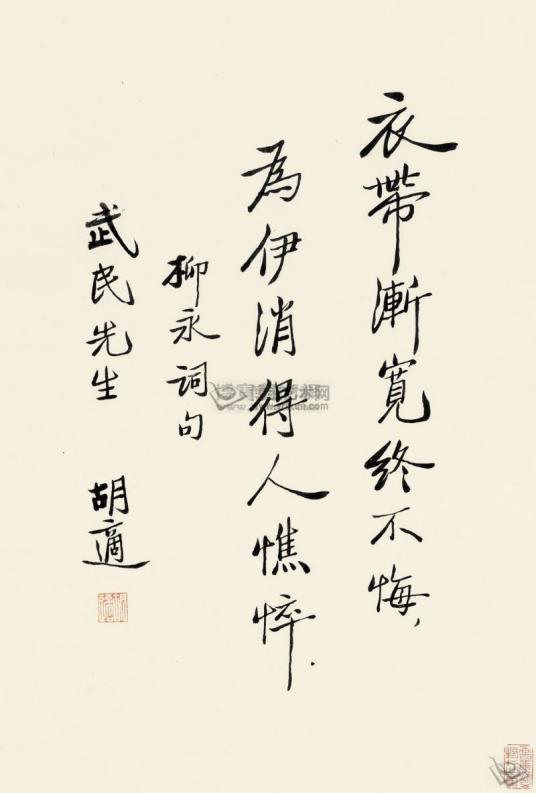 衣帶漸寬終不悔，
為伊消得人憔悴．
柳永詞句
武民先生　胡適